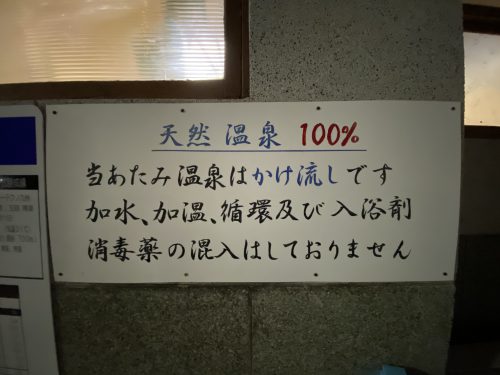 天然 温泉 100%
当あたみ温泉はかけ流しです
加水、加温、循環及び入浴剤
消毒薬の混入はしておりません